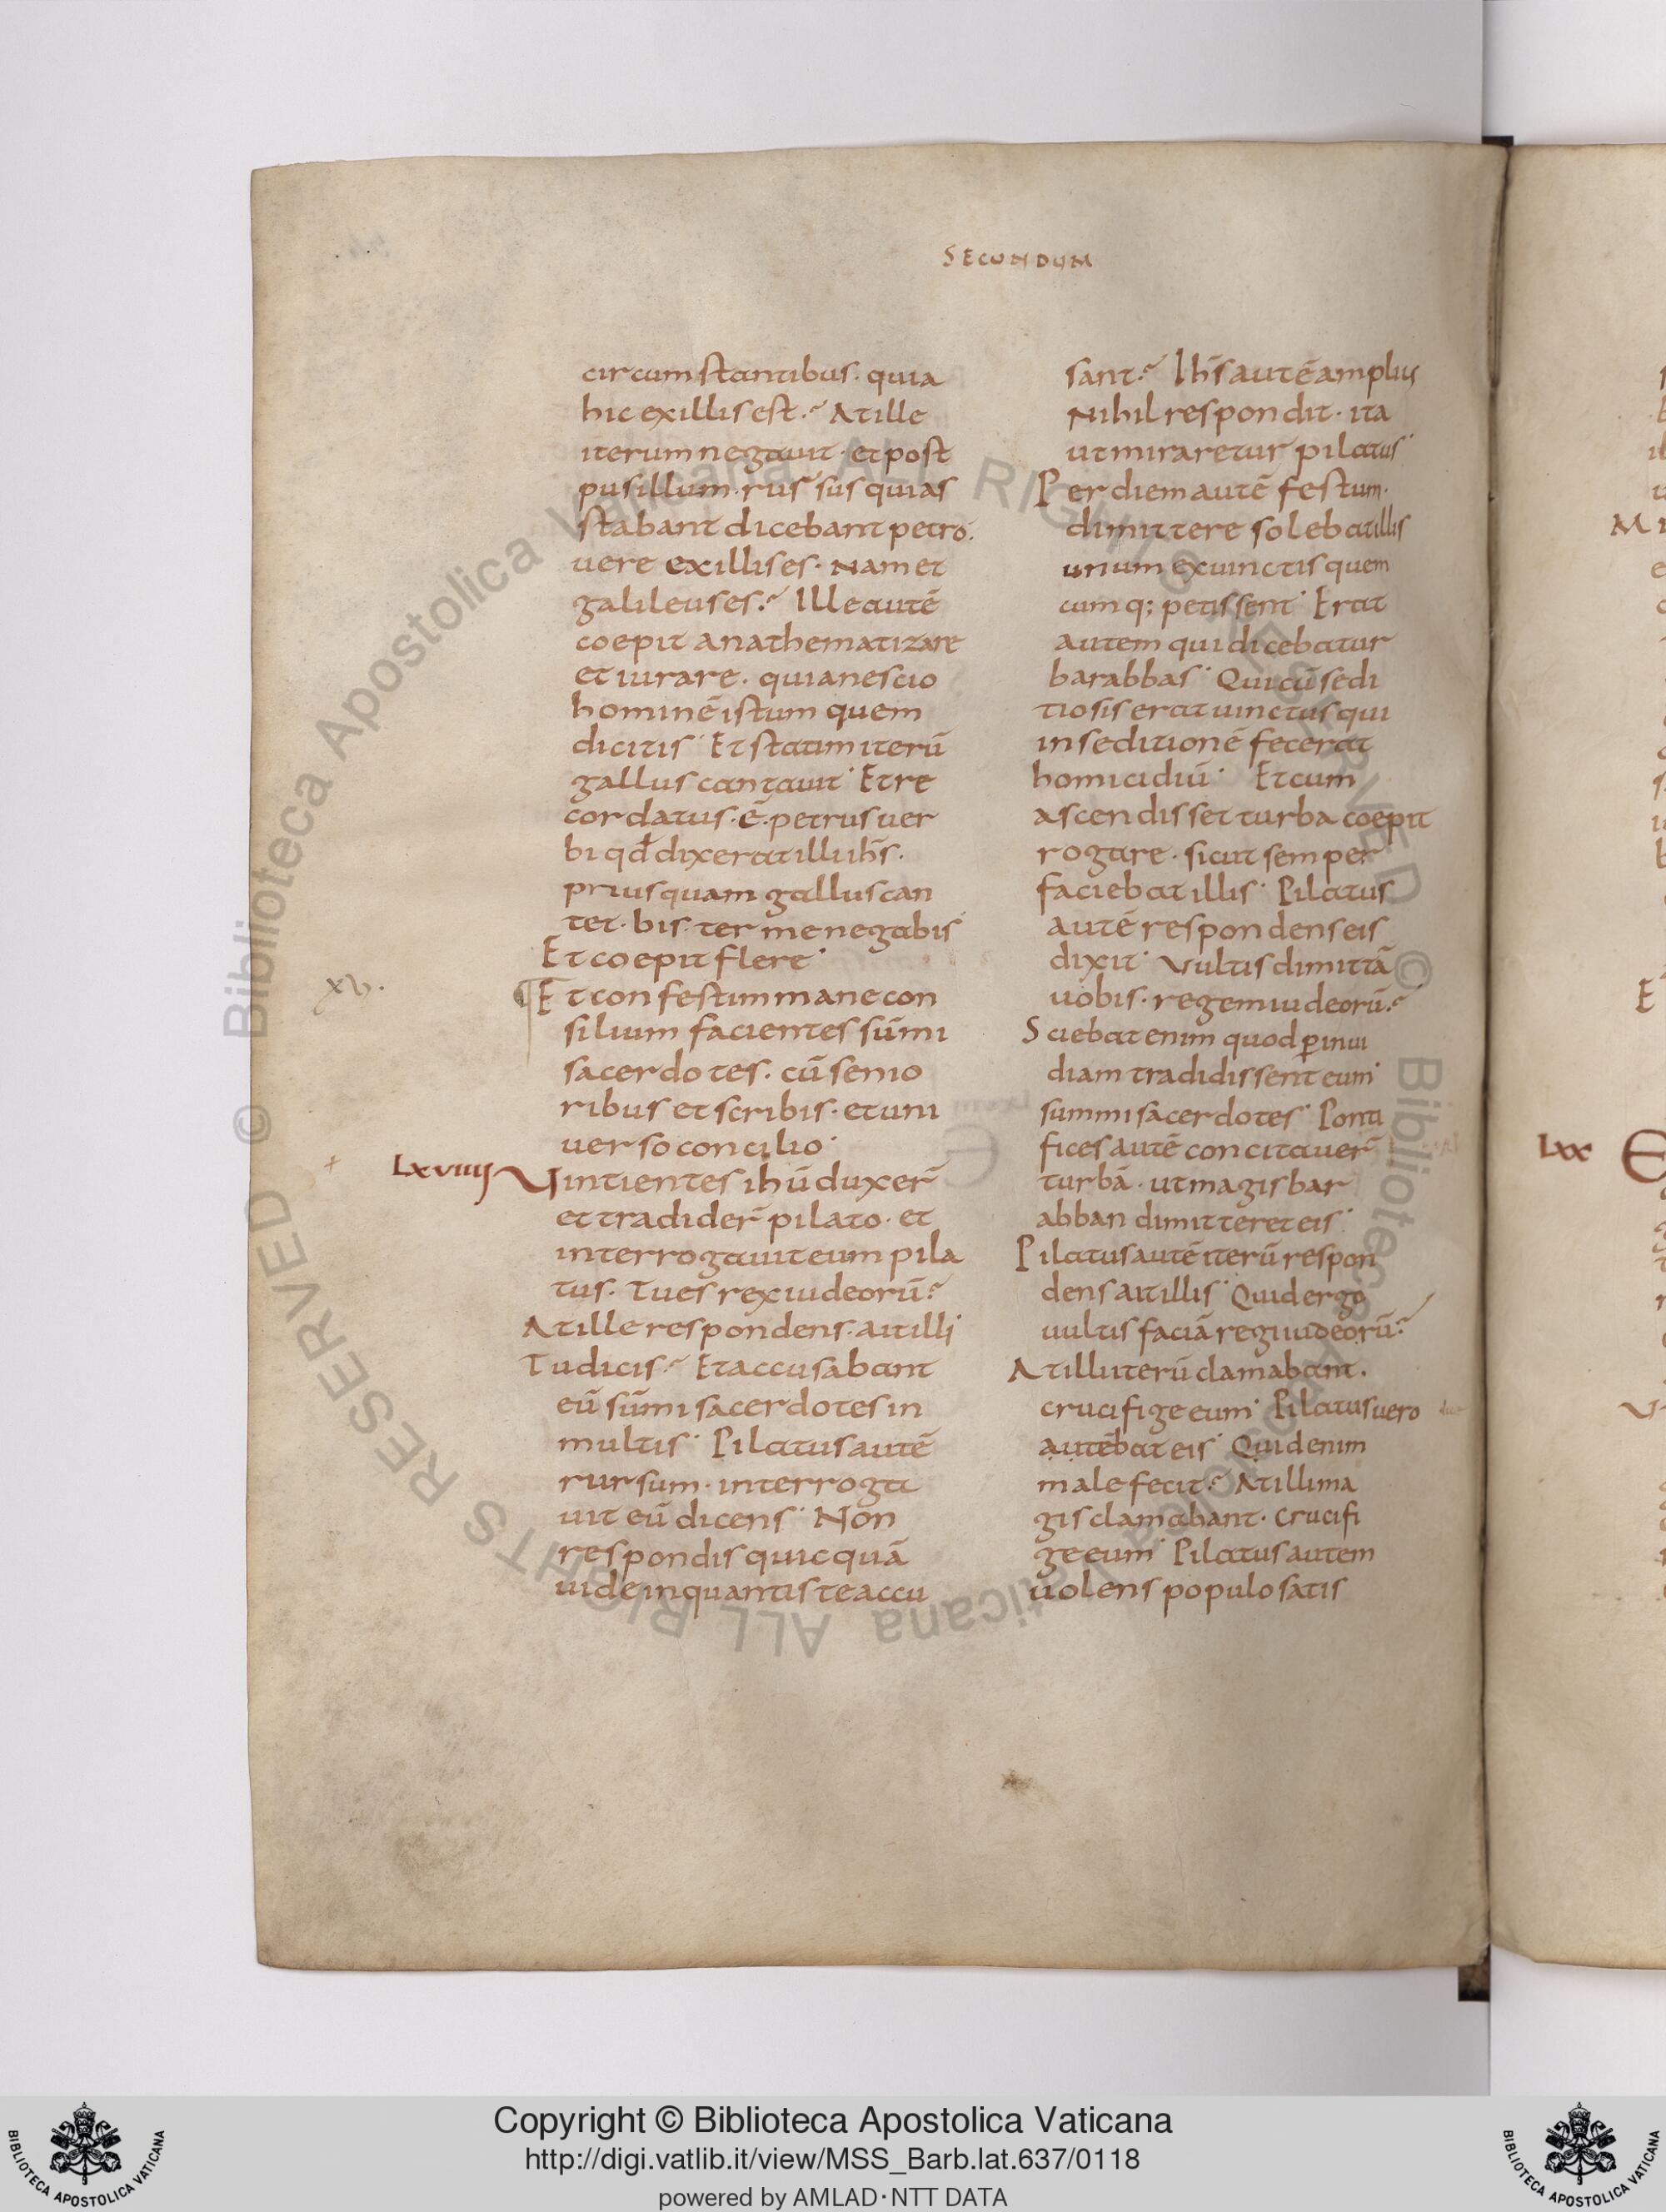 SECUNDUM
circumstantibus. quia
hic exillis est.? At ille
iterum negauit. et post
pusillum. rursus quias
stabant dicebant petro.
uere exillis es. Nam et
galileus es.? Ille autē
coepit anathematizare
et iurare. quia nescio
hominē istum quem
dicitis. Et statim iterū
gallus cantauit. Et re
cordatus. ē. petrus uer
bi qđ dixerat illi ih̄s.
priusquam gallus can
tet. bis. ter me negabis
Et coepit flere.
xv.
Et confestim mane con
silium facientes sūmi
sacerdotes. cū senio
ribus et scribis. et uni
uerso concilio.
LXVIIII Uintientes ih̄ū duxer̄
et tradider̄ pilato. et
interrogauit eum pila
tus. Tu es rex iudeorū.?
At ille respondens. ait illi
Tu dicis.? Et accusabant
eū sūmi sacerdotes in
multis. Pilatus autē
rursum. interroga
uit eū dicens. Non
respondis quicquā
uide inquantis te accu
sant.? Ih̄s autē amplius
Nihil respondit. ita
ut miraretur pilatus.
Per diem autē festum.
dimittere solebat illis
unum ex uinctis quem
cumq; petissent. Erat
autem qui dicebatur
barabbas. Qui cū sedi
tiosis erat uinctus qui
in seditionē fecerat
homicidiū. Et cum
ascendisset turba coepit
rogare. sicut semper
faciebat illis. Pilatus
autē respondens eis
dixit. Vultis dimittā
uobis. regem iudeorū.?
Sciebat enim quod ꝑ inui
diam tradidissent eum.
summi sacerdotes. Ponti
fices autē concitauer̄
turbā. ut magis bar
abban dimitteret eis.
Pilatus autē iterū respon
dens ait illis. Quid ergo
uultis faciā regi iudeorū.?
At illi iterū clamabant.
crucifige eum. Pilatus uero
autēbat eis. Quid enim
male fecit.? At illi ma
gis clamabant. crucifi
ge eum. Pilatus autem
uolens populo satis
LXX
Copyright © Biblioteca Apostolica Vaticana
http://digi.vatlib.it/view/MSS_Barb.lat.637/0118
powered by AMLAD·NTT DATA
BIBLIOTECA APOSTOLICA VATICANA
BIBLIOTECA APOSTOLICA VATICANA
© Biblioteca Apostolica Vaticana ALL RIGHTS RESERVED © Biblioteca Apostolica Vaticana ALL RIGHTS RESERVED